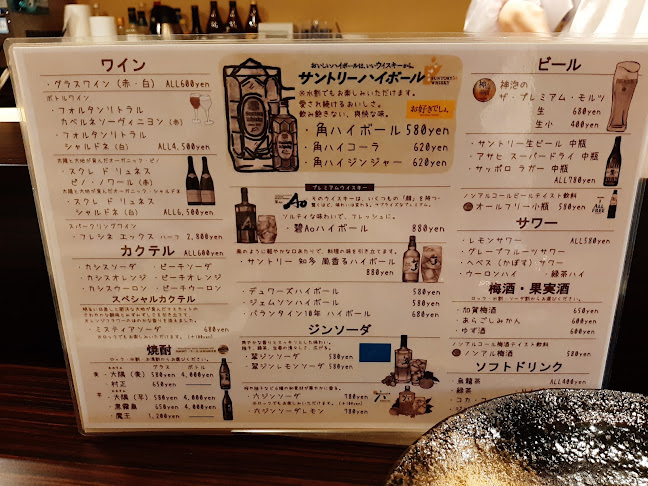 ワイン
・グラスワイン（赤・白） ALL600yen
ボトルワイン
・フォルタンリトラル
カベルネソーヴィニヨン（赤）
・フォルタンリトラル
シャルドネ（白）
ALL4,500yen
太陽と大地が育んだオーガニック・ピノ
・スクレ ド リュネス
ピノ・ノワール（赤）
太陽と大地が育んだオーガニック・シャルドネ
・スクレ ド リュネス
シャルドネ（白）
ALL6,500yen
スパークリングワイン
・フレシネ エックス ハーフ 2,800yen
カクテル
ALL600yen
・カシスソーダ ・ピーチソーダ
・カシスオレンジ ・ピーチオレンジ
・カシスウーロン ・ピーチウーロン
スペシャルカクテル
・ミスティアソーダ 680yen
焼酎
グラス ボトル
・大隅（麦） 580yen 4,000yen
・村正 650yen
・大隅（芋） 580yen 4,000yen
・黒霧島 650yen 4,000yen
・魔王 1,200yen
おいしいハイボールは、いいウイスキーから。
サントリーハイボール
SUNTORY WHISKY
※水割でもお楽しみいただけます。
愛され続けるおいしさ。
飲み飽きない、爽快な味。
お好きでしょ。
・角ハイボール 580yen
・角ハイコーラ 620yen
・角ハイジンジャー 620yen
プレミアムウイスキー
Ao
ソルティな味わいで、フレッシュに。
・碧Aoハイボール 880yen
風のように軽やかな口あたりで、料理の味を引き立てます。
・サントリー 知多 風香るハイボール
880yen
・デュワーズハイボール 580yen
・ジェムソンハイボール 580yen
・バランタイン10年 ハイボール 680yen
ジンソーダ
・翠ジンソーダ 580yen
・翠ジンソーダレモン 580yen
・六ジンソーダ 780yen
・六ジンソーダレモン 780yen
ビール
神泡の
ザ・プレミアム・モルツ
生 680yen
生小 400yen
・サントリー生ビール 中瓶
・アサヒ スーパードライ 中瓶
・サッポロ ラガー 中瓶
ALL780yen
ノンアルコールビールテイスト飲料
・オールフリー小瓶 580yen
ALL FREE
サワー
・レモンサワー ALL580yen
・グレープフルーツサワー
・ヘベス（かぼす）サワー
・ウーロンハイ ・緑茶ハイ
梅酒・果実酒
ロック・水割・ソーダ割でお楽しみください。
・加賀梅酒 650yen
・あらごしみかん 600yen
・ゆず酒 600yen
ノンアルコール梅酒テイスト飲料
・ノンアル梅酒 580yen
ソフトドリンク
・烏龍茶 ALL400yen
・緑茶